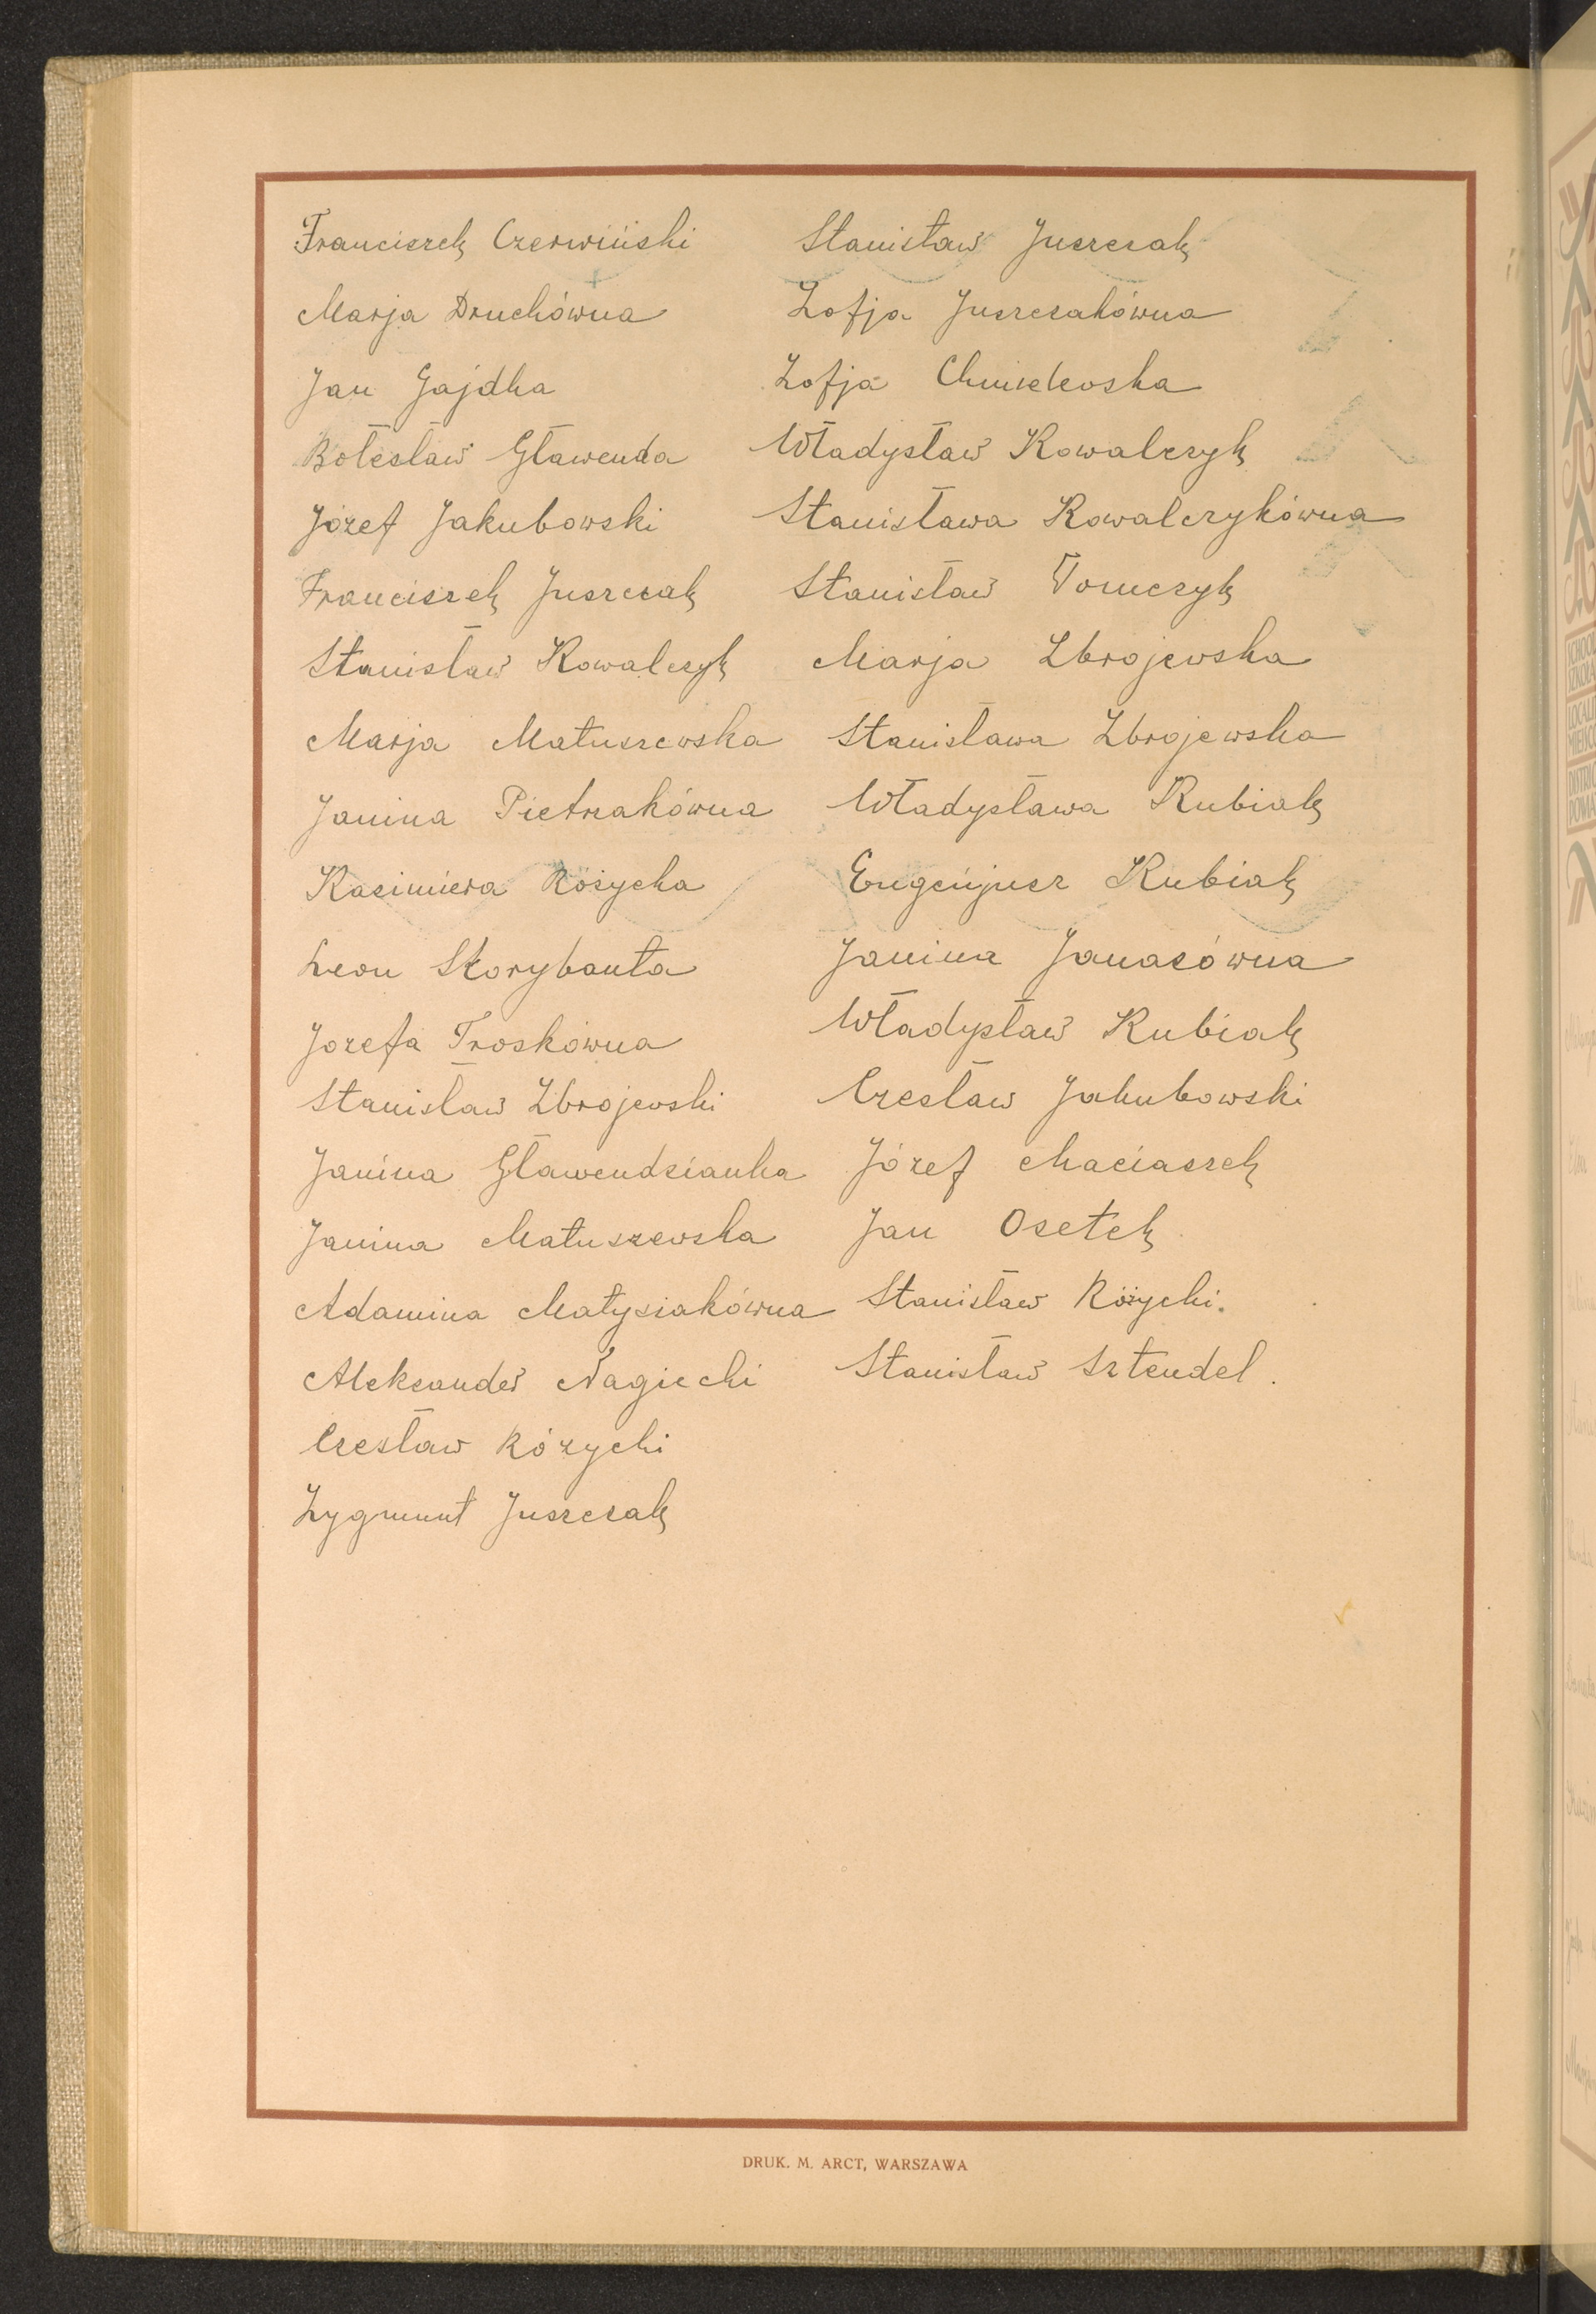 Franciszek Czerwiński
Marja Druchówna
Jan Gajdka
Bolesław Gławenda
Józef Jakubowski
Franciszek Juszczak
Stanisław Kowalczyk
Marja Matuszewska
Janina Pietrzakówna
Kazimiera Różycka
Leon Skorybauta
Józefa Troskówna
Stanisław Zbrojewski
Janina Gławendzianka
Janina Matuszewska
Adamina Matysiakówna
Aleksander Nagiecki
Czesław Różycki
Zygmunt Juszczak
Stanisław Juszczak
Zofja Juszczakówna
Zofja Chmielewska
Władysław Kowalczyk
Stanisława Kowalczykówna
Stanisław Tomczyk
Marja Zbrojewska
Stanisława Zbrojewska
Władysława Kubiak
Eugenjusz Kubiak
Janina Janasówna
Władysław Kubiak
Czesław Jakubowski
Józef Maciaszek
Jan Osetek
Stanisław Różycki.
Stanisław Sztendel.
DRUK. M. ARCT, WARSZAWA